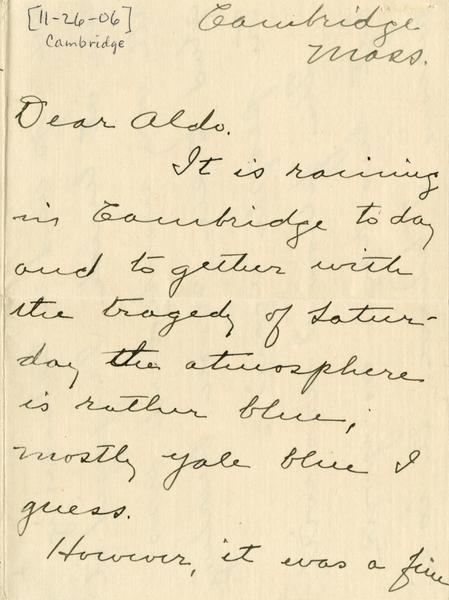 [11-26-06]
Cambridge
Cambridge
Mass.
Dear Aldo.
It is raining
in Cambridge today
and together with
the tragedy of Satur-
day the atmosphere
is rather blue,
mostly yale blue I
guess.
However, it was a fine